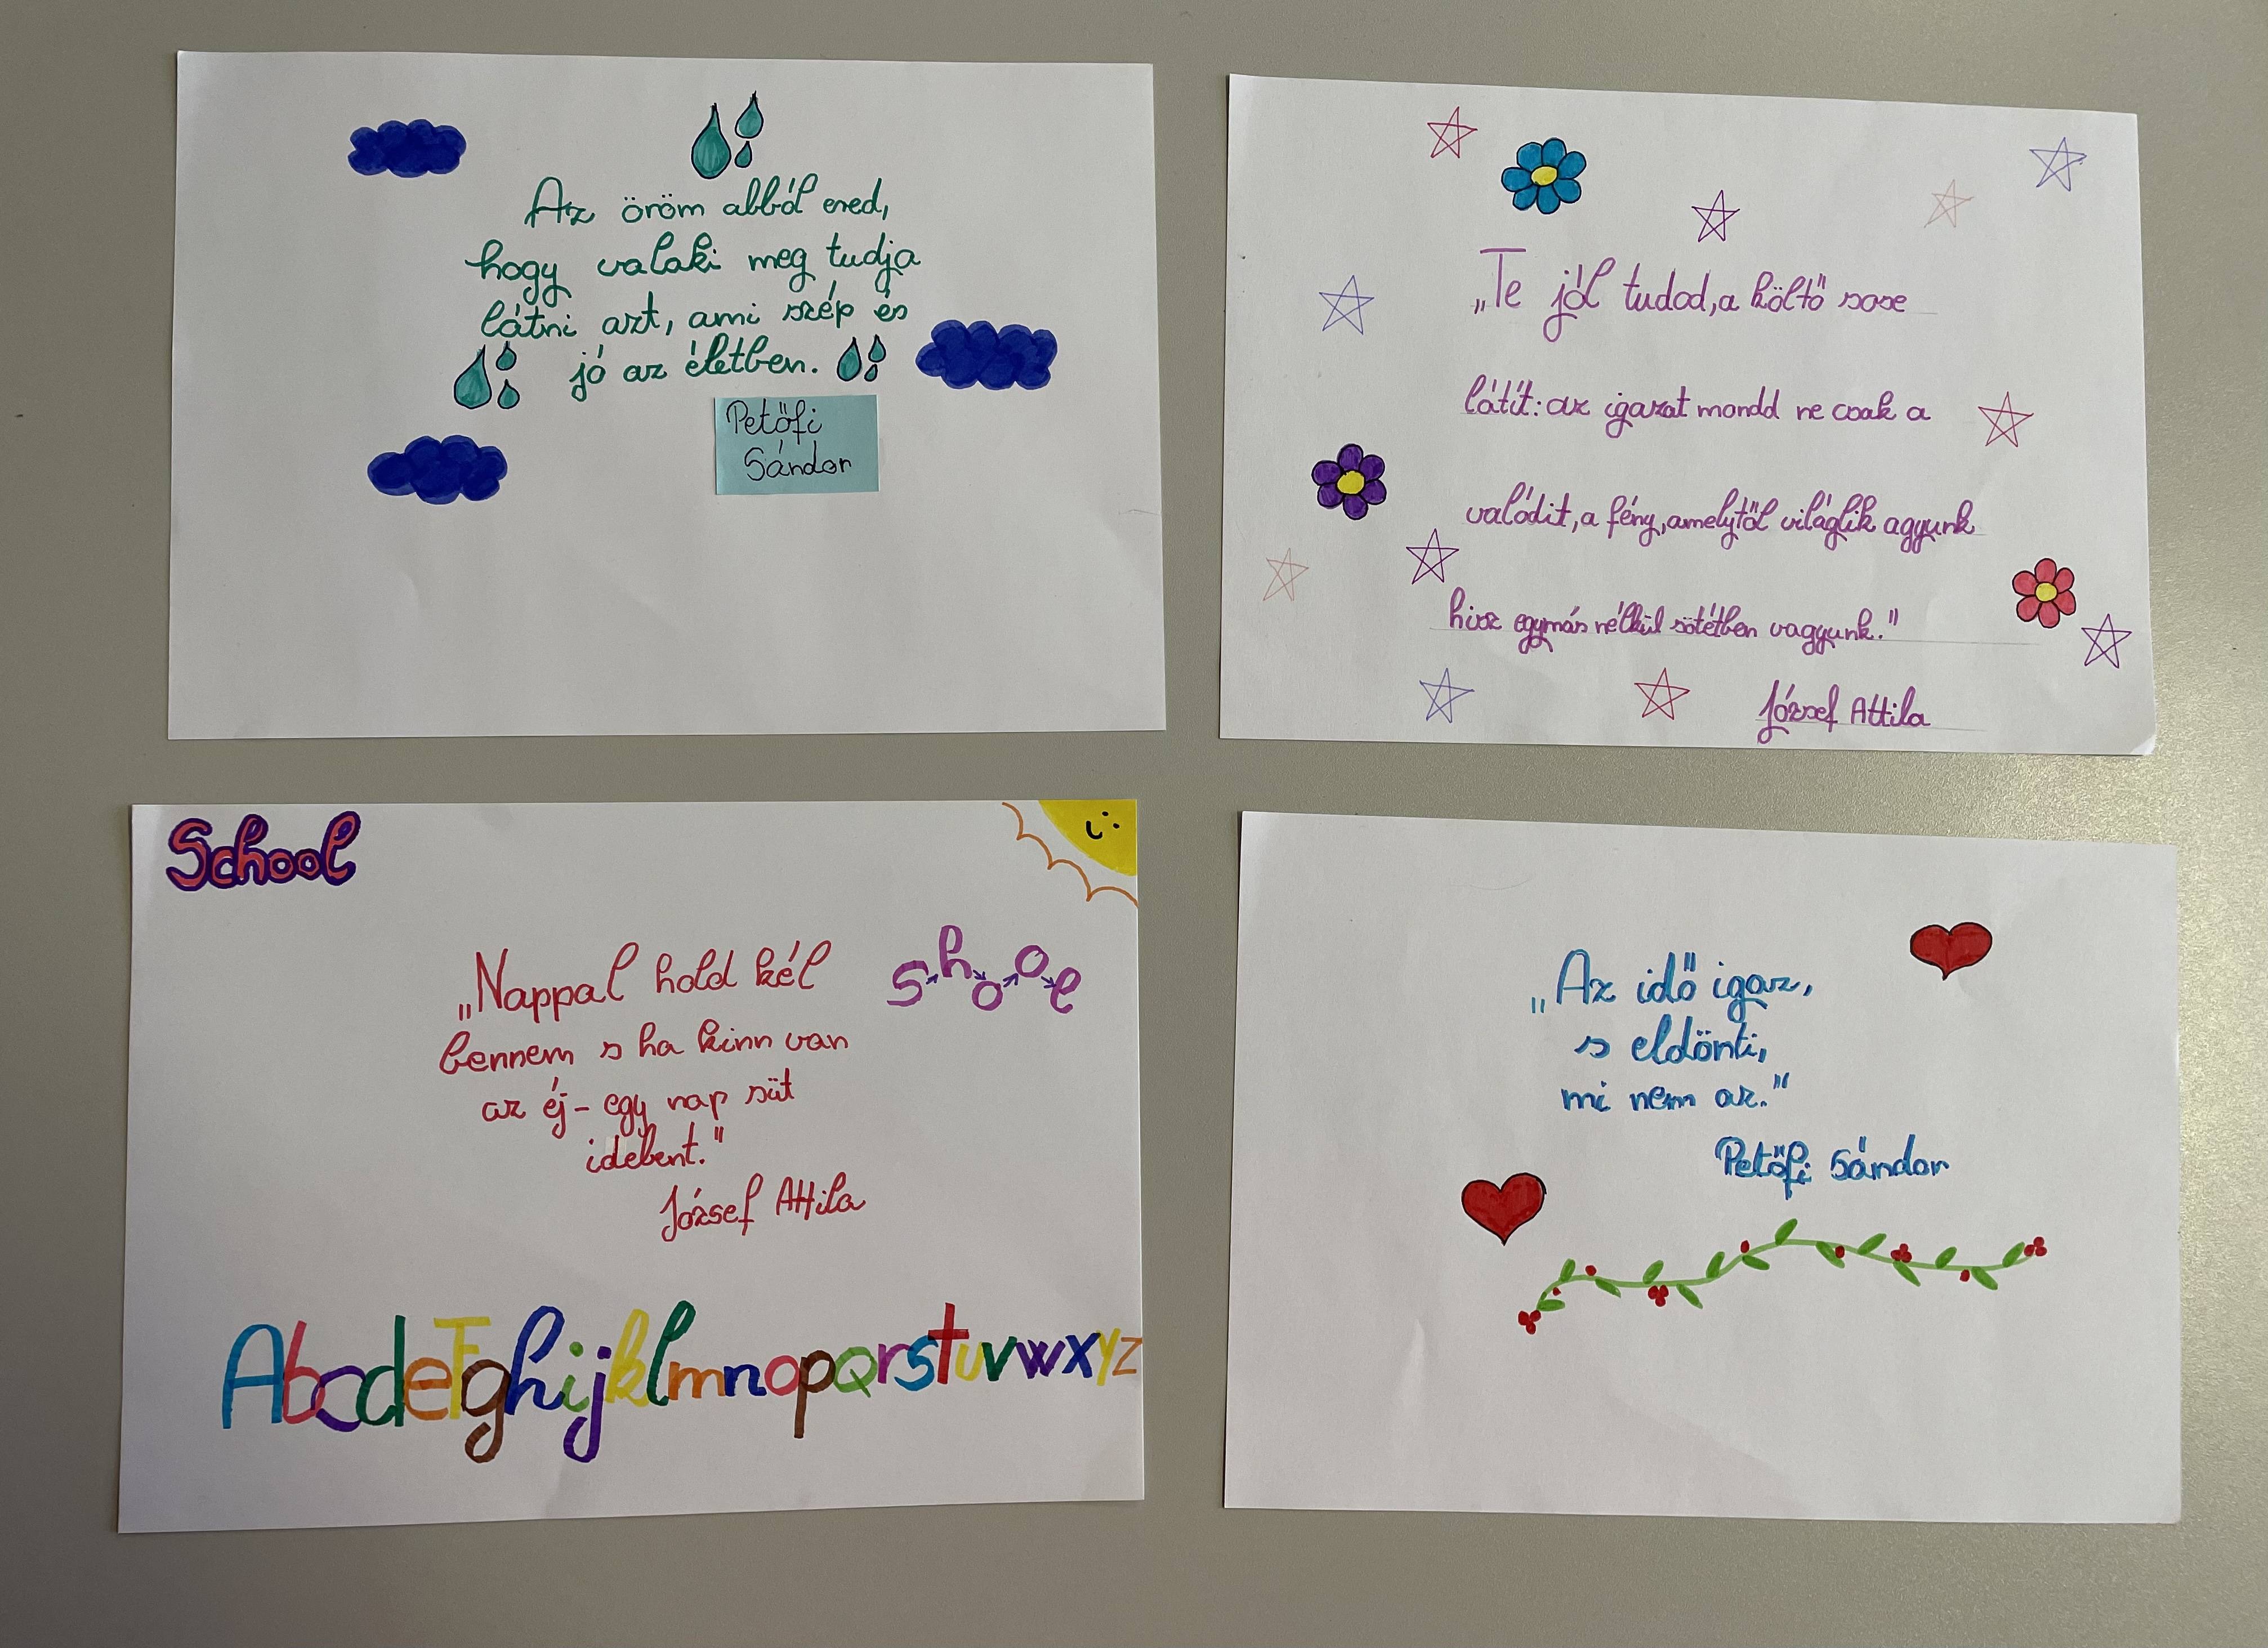 Az öröm abból ered,
hogy valaki meg tudja
látni azt, ami szép és
jó az életben.
Petőfi
Sándor
„Te jól tudod, a költő sose
látít: az igazat mondd ne csak a
valódit, a fény, amelytől világlik agyunk
hisz egymás nélkül sötétben vagyunk."
József Attila
School
„Nappal hold kél
bennem s ha kinn van
az éj- egy nap süt
idebent."
József Attila
Shool
AbcdeFghijklmnopQrstuvwxyz
„Az idő igaz,
s eldönti,
mi nem az."
Petőfi Sándor